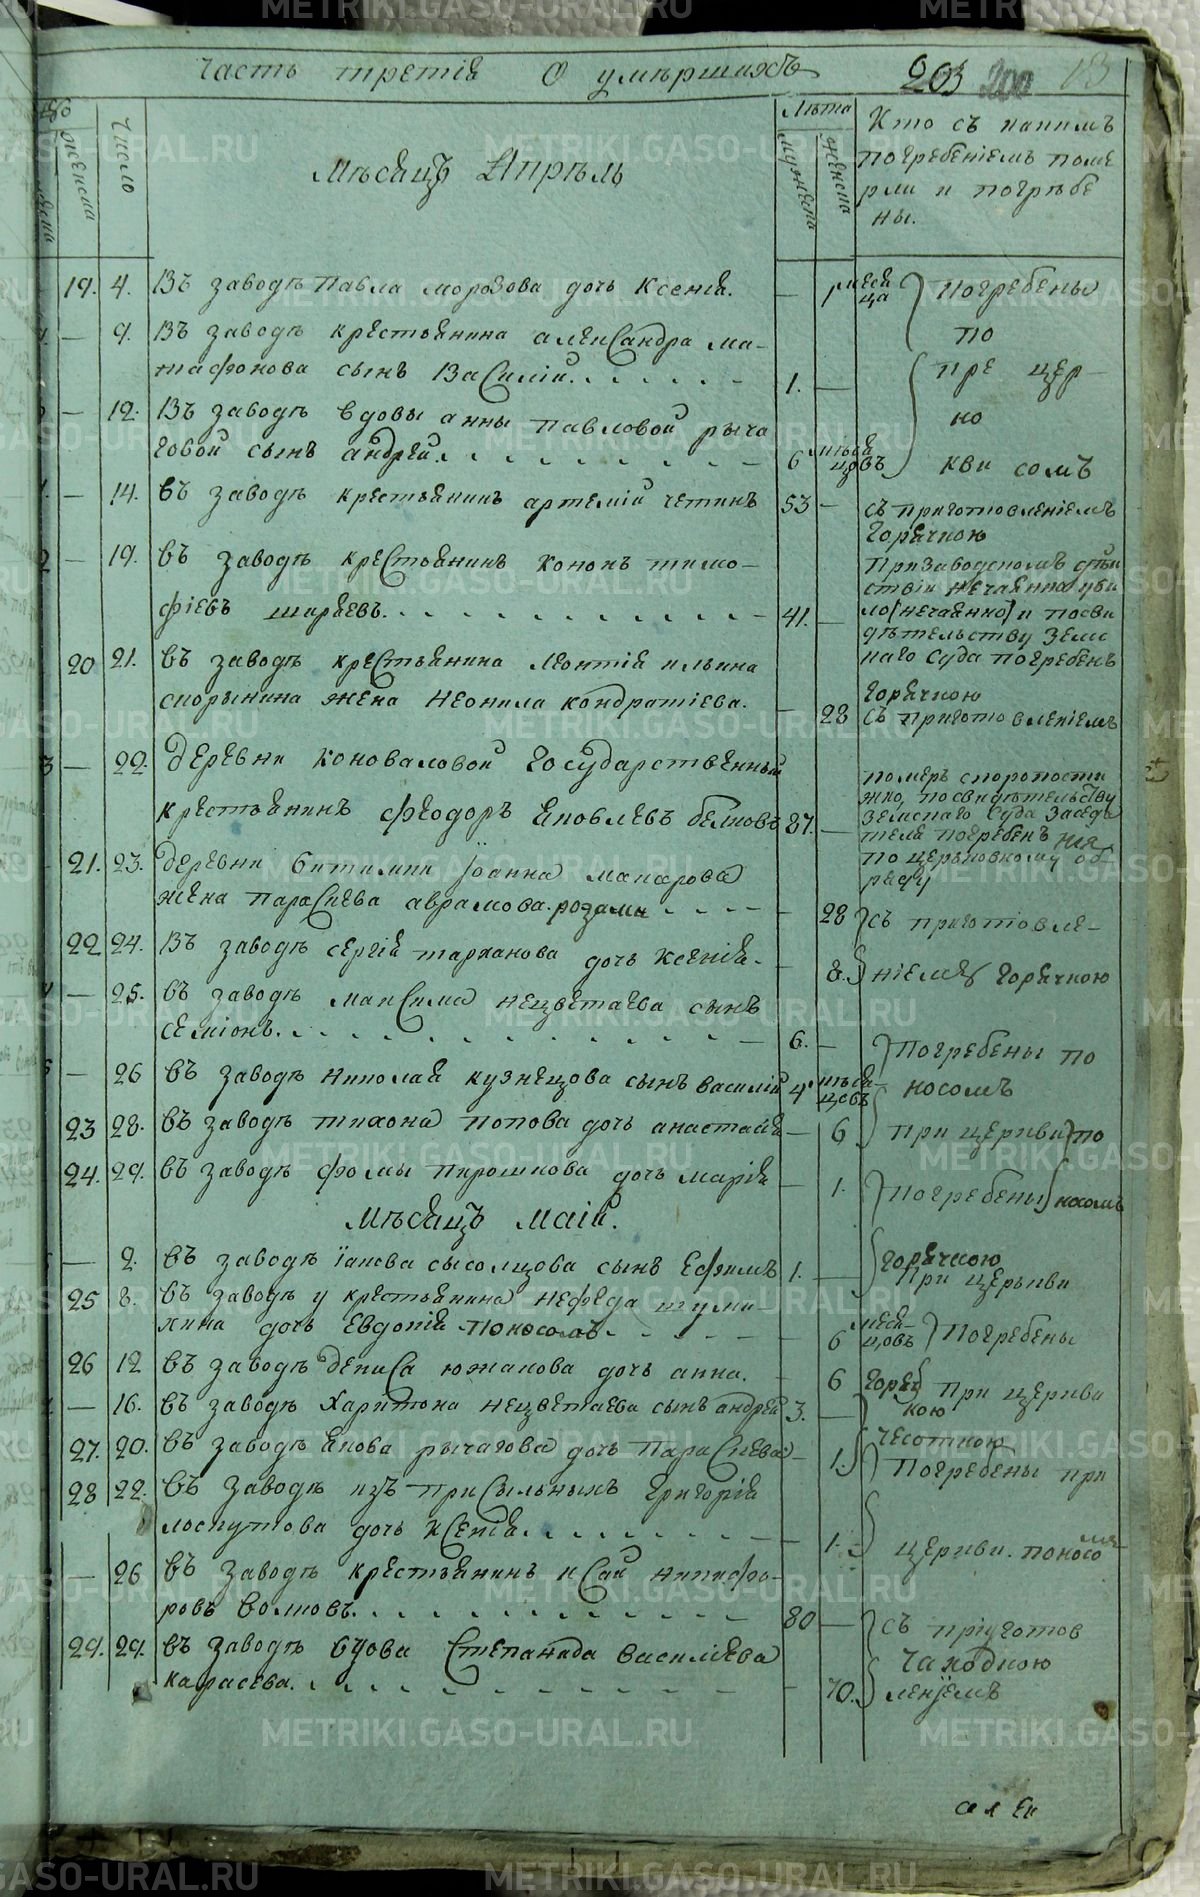 Часть третiя О умѣршихъ 203 200 13
женска
Число
Лѣта
мужеска
женска
Кто съ какимъ
погребенiемъ поме
рли и погрѣбе
ны.
Мѣсяцъ Апрѣль
19. 4. Въ заводѣ Павла морозова дочь Ксенiя. — 1 меся
ца
Погребены
по
— 9. Въ заводѣ крестьянина александра ма-
тафонова сынъ Василiй. 1. —
пре цер-
но
— 12. Въ заводѣ вдовы анны павловой рыча
говой сынъ андрей. 6 мѣся
цовъ
кви сомъ
— 14. въ заводѣ крестьянинъ артемiй четинъ 53 —
съ приготовленiемъ
горячкою
— 19. въ заводѣ крестьянинъ кононъ тимо-
фiевъ ширяевъ. 41. —
при заводскомъ дѣй
ствiи нечаянна уби
ло [нечаянно] и по сви
дѣтельству земс
каго суда погребенъ
20 21. въ заводѣ крестьянина леонтiя ильина
спорынина жена неонила кондратiева. — 28
горячкою
съ приготовленiемъ
3 — 22. деревни коноваловой государственный
крестьянинъ феодоръ яковлевъ белковъ 37. —
померъ скоропости
жно, по свидѣтельству
земскаго суда заседа
теля погребенъ не
по церьковному об-
ряду
21. 23. деревни битимки Iоанна макарова
жена параскева аврамова. родами — 28
съ приготовле-
22 24. Въ заводѣ сергiя тарханова дочь ксенiя. — 8.
нiемъ горячкою
— 25. въ заводѣ максима нецветаева сынъ
семiонъ. 6. —
Погребены по
— 26 въ заводѣ николая кузнецова сынъ василiй 4 мѣся-
цовъ
носомъ
23 28. въ заводѣ тихона попова дочь анастасiя — 6
при церкви по
24. 29. въ заводѣ фомы пирошкова дочь марiя — 1.
Погребены носомъ
Мѣсяцъ Маiй.
— 2. въ заводѣ iакова сысолцова сынъ Ефимъ 1. —
горячкою
при церькви
25 8. въ заводѣ у крестьянина нефеда шуми-
хина дочь Евдокiя поносомъ. 6 меся-
цовъ
Погребены
26 12 въ заводѣ дениса южакова дочь анна. — 6
горяч
кою
при церкви
— 16. въ заводѣ Харитона нецветаева сынъ андрей 3. —
чесоткою
27. 20. въ заводѣ якова рычагова дочь параскева — 1.
Погребены при
28 22. въ заводѣ изъ присыльныхъ григорiя
лоскутова дочь ксенiя. — 1.
церкви. поносо
мъ
— 26 въ заводѣ крестьянинъ исай никифо-
ровъ волковъ. 80 —
съ прiуготов
29. 29. въ заводѣ вдова Степанида василiева
карасева. — 70.
чахоткою
ленiемъ